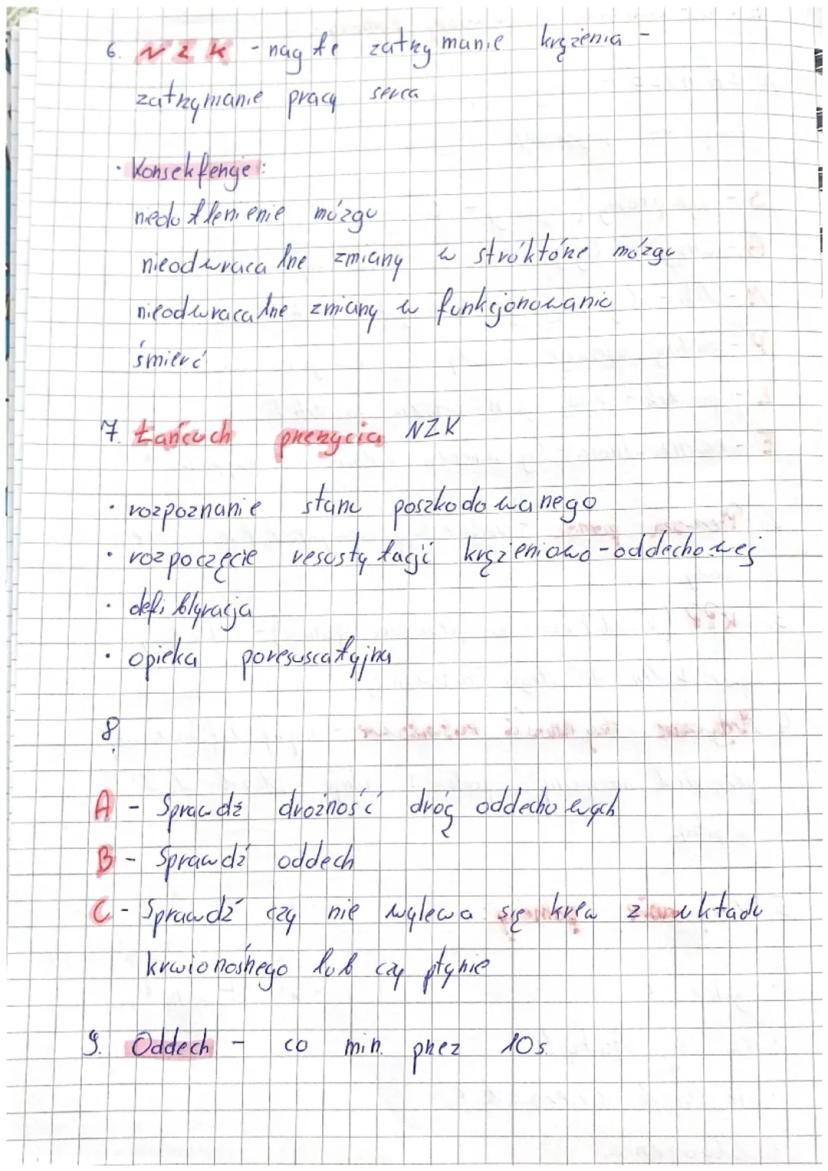 6. NZK - nagłe zatrzymanie krążenia -
zatrzymanie pracy serca
· Konsekfencje:
niedotlenienie mózgu
nieodwracalne zmiany w stróktórze mózgu
nieodwracalne zmiany w funkcjonowanie
śmierć
7. Łańcuch przeżycia NZK
· rozpoznanie stanu poszkodowanego
· rozpoczęcie resustytacji krążeniowo-oddechowej
· defiblyracja
· opieka poresuscatyjna
8.
A - Sprawdź drożność dróg oddechowych
B - Sprawdź oddech
C - Sprawdź czy nie wylewa się krew z układu
krwionośnego lub czy płynie
9. Oddech - co min. przez 10s.